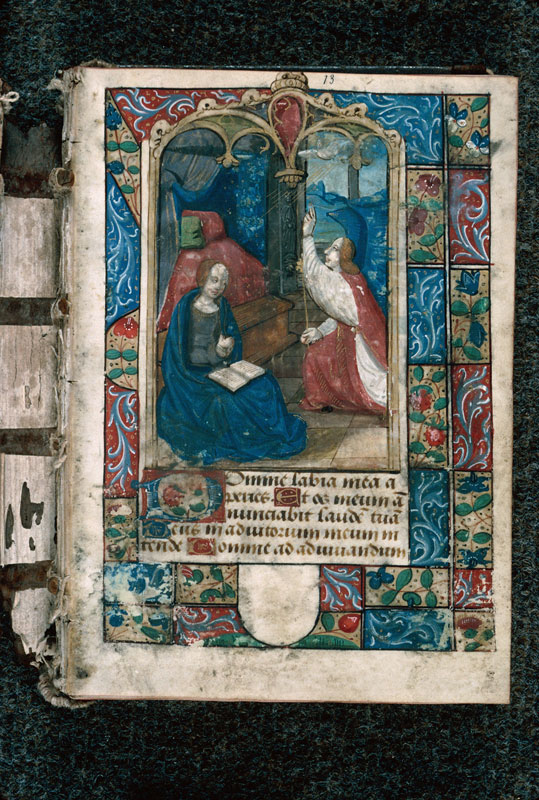 13
Domine labia mea a
peries Et os meum ā
nunciabit laudē tuā
Deus in adiutorium meum in
tende Domine ad adiuuandum